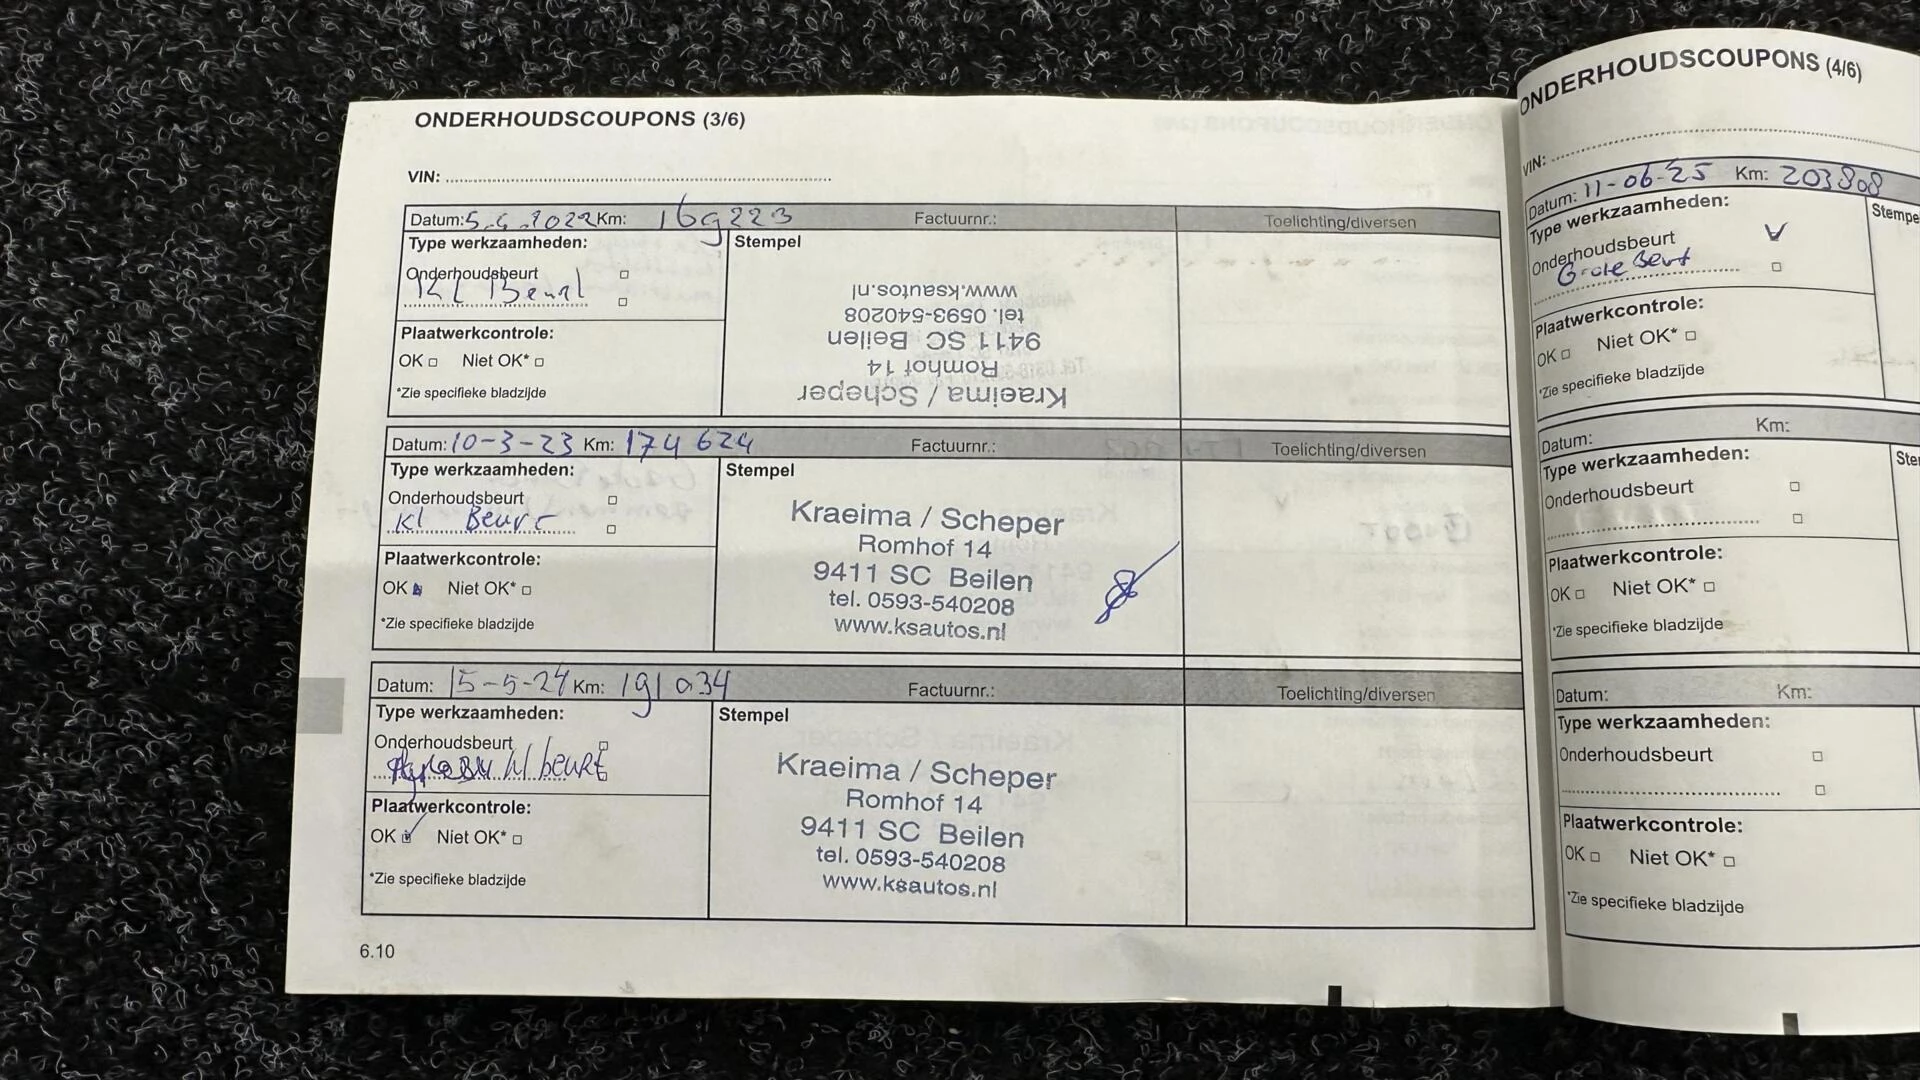 ONDERHOUDSCOUPONS (3/6)
VIN:
Datum: 5.4.2022 Km: 169223 Factuurnr.: Toelichting/diversen
Type werkzaamheden: Stempel
Onderhoudsbeurt
Kl Beurt
Plaatwerkcontrole:
OK Niet OK*
*Zie specifieke bladzijde
Kraeima / Scheper
Romhof 14
9411 SC Beilen
tel. 0593-540208
www.ksautos.nl
Datum: 10-3-23 Km: 174 624 Factuurnr.: Toelichting/diversen
Type werkzaamheden: Stempel
Onderhoudsbeurt
Kl Beurt
Plaatwerkcontrole:
OK Niet OK*
*Zie specifieke bladzijde
Kraeima / Scheper
Romhof 14
9411 SC Beilen
tel. 0593-540208
www.ksautos.nl
Datum: 15-5-24 Km: 191 034 Factuurnr.: Toelichting/diversen
Type werkzaamheden: Stempel
Onderhoudsbeurt
beurt
Plaatwerkcontrole:
OK Niet OK*
*Zie specifieke bladzijde
Kraeima / Scheper
Romhof 14
9411 SC Beilen
tel. 0593-540208
www.ksautos.nl
6.10
ONDERHOUDSCOUPONS (4/6)
VIN:
Datum: 11-06-25 Km: 203808
Type werkzaamheden: Stempe
Onderhoudsbeurt
Grote Beurt
Plaatwerkcontrole:
OK Niet OK*
*Zie specifieke bladzijde
Datum: Km:
Type werkzaamheden: Ster
Onderhoudsbeurt
Plaatwerkcontrole:
OK Niet OK*
*Zie specifieke bladzijde
Datum: Km:
Type werkzaamheden:
Onderhoudsbeurt
Plaatwerkcontrole:
OK Niet OK*
*Zie specifieke bladzijde